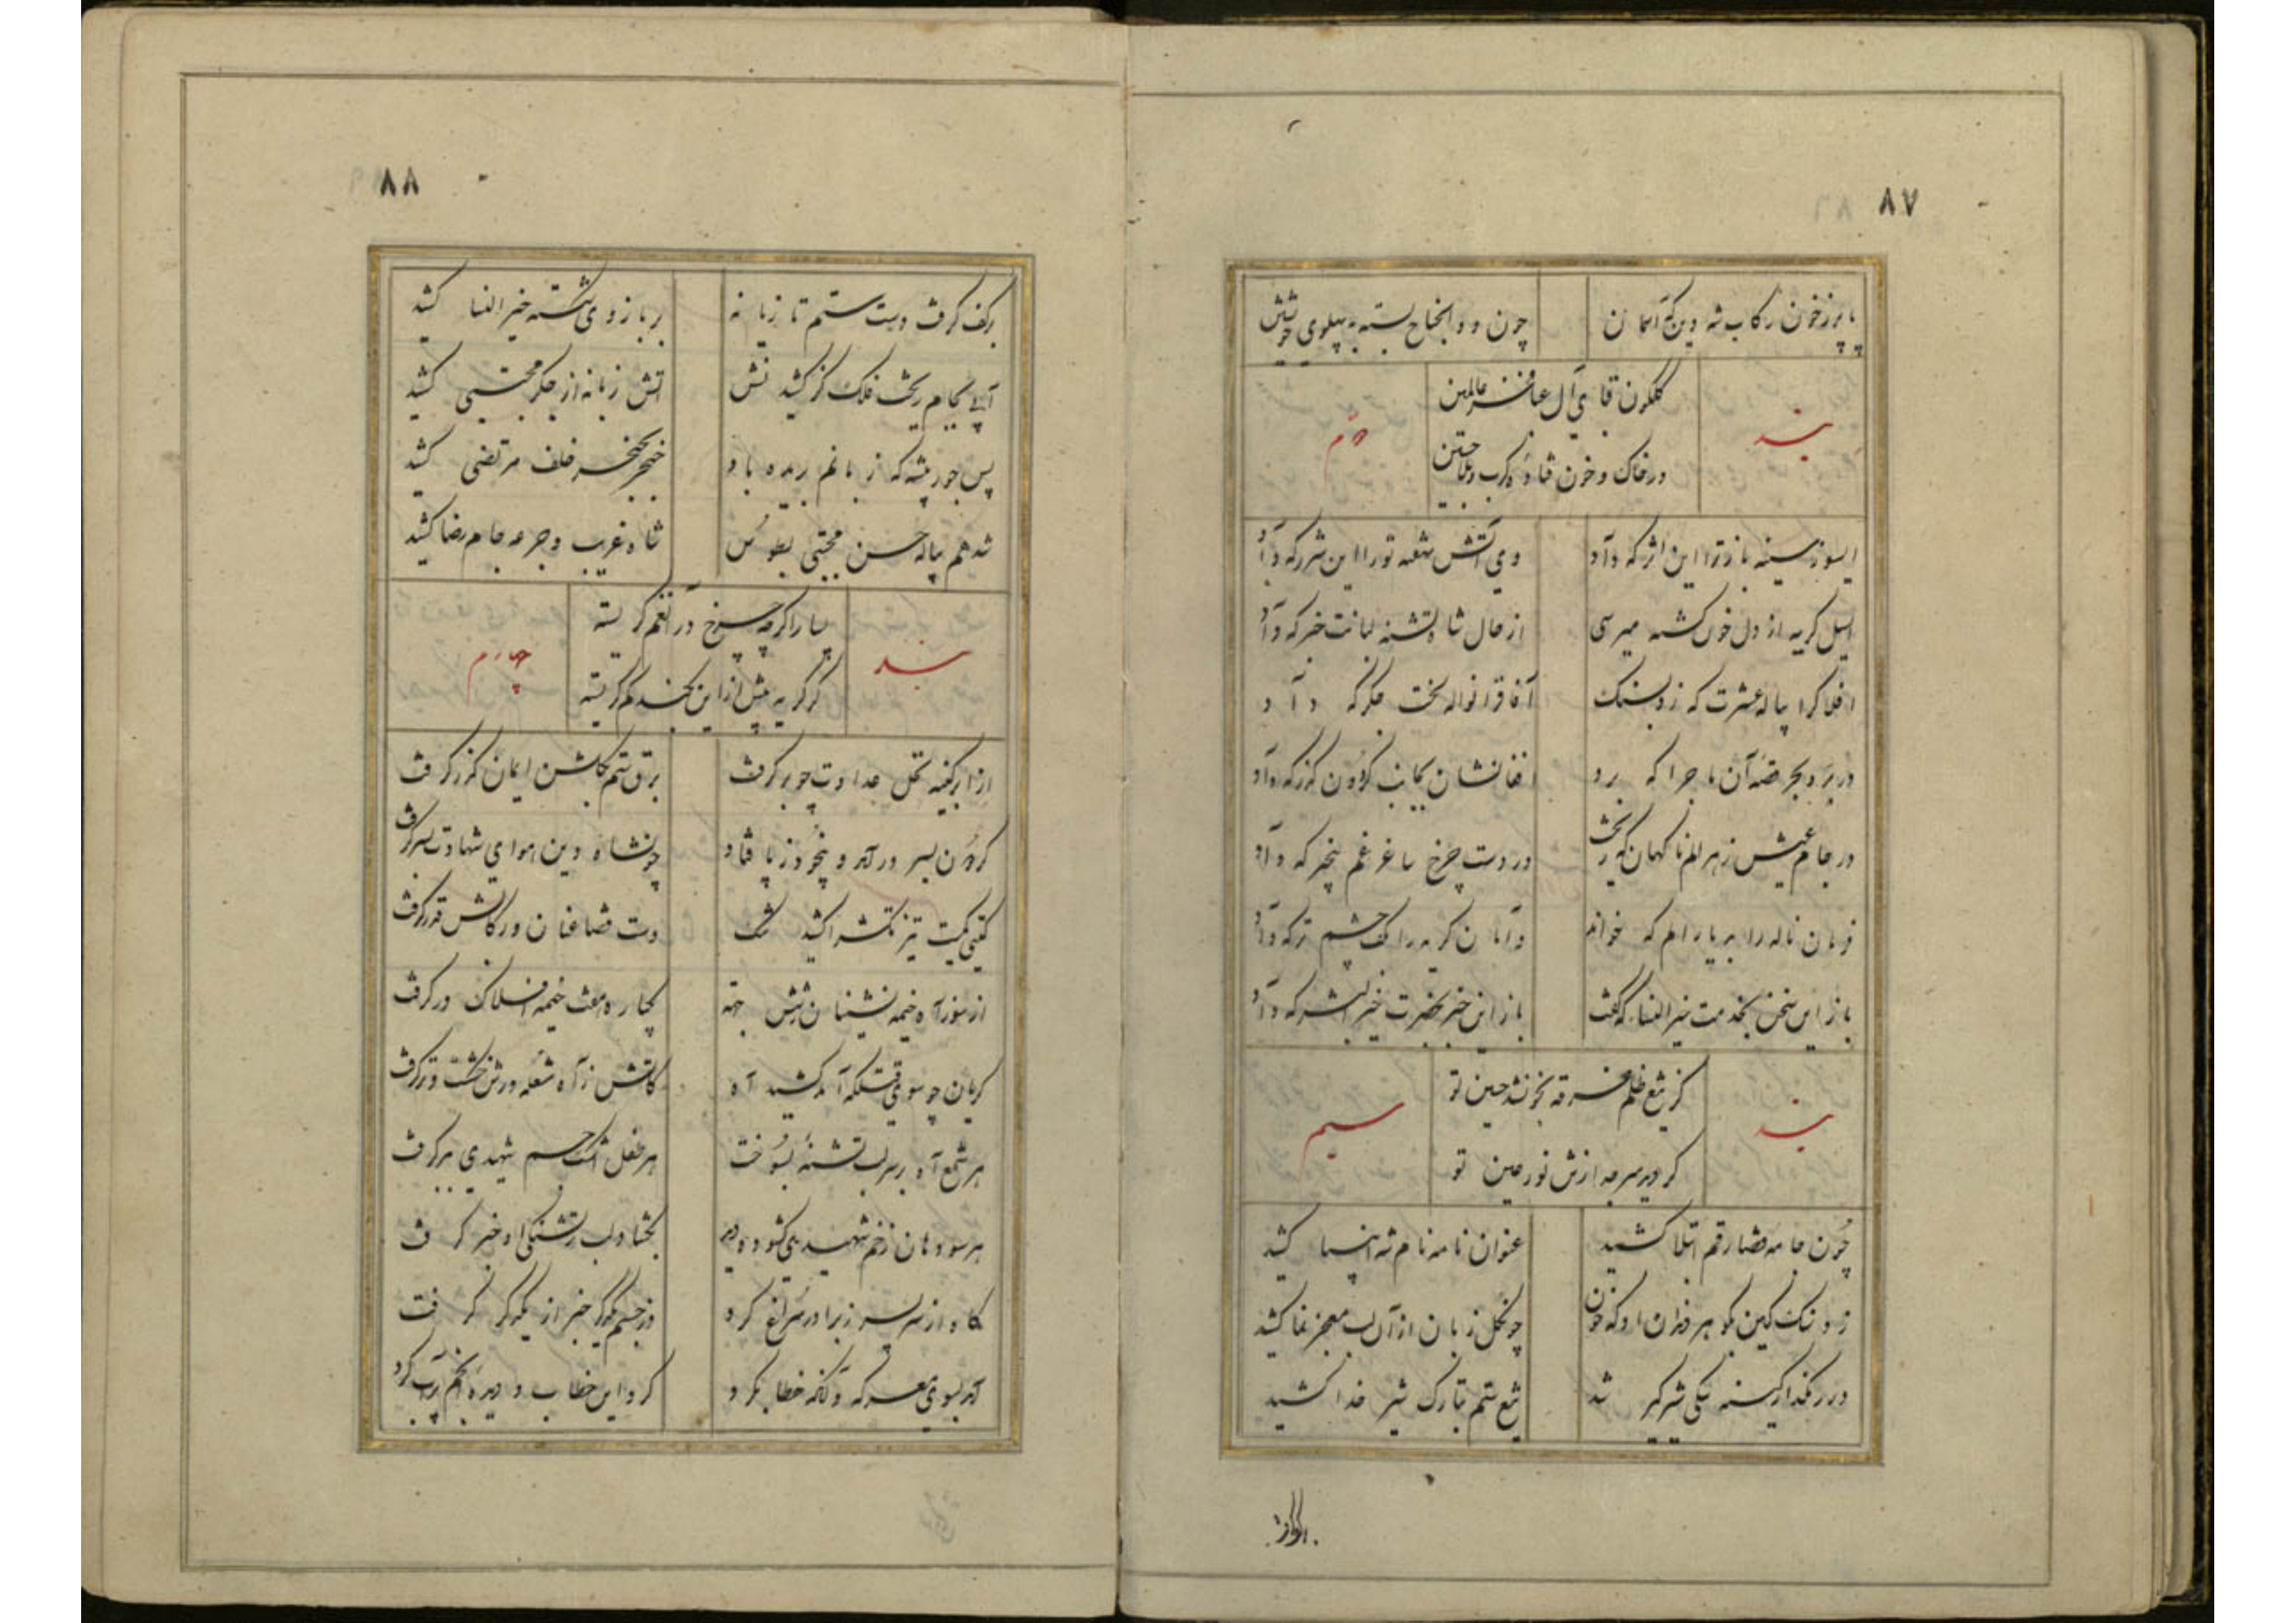 ٨٧
پا پر ز خون رکاب شه دین که آسمان
چون ذوالجناح بسته به پهلوی خویش
بند
گلگون قبای آل عبا فخر عالمین
دویم
در خاک و خون فتاده کرب و بلا حسین
ای سوز سینه باز ترا این اثر که داد
وی آتش شعله تو را این شرر که داد
ای سیل گریه از دل خون گشته میرسی
از حال شاه تشنه لبانت خبر که داد
افلاک را پیاله عشرت که زد بسنگ
آفاق را نواله لخت جگر که داد
در بر و بحر قصه آن ماجرا که برد
افغانشان بجانب گردون گذر که داد
در جام عیش زهر الم ناگهان که ریخت
در دست چرخ ساغر غم بیخبر که داد
فرمان ناله را بر یارالم که خواند
دامان گریه را کف چشم تر که داد
باز این سخن بخدمت خیر النسا که گفت
باز این خبر بحضرت خیر البشر که داد
بند
کز تیغ ظلم غرقه بخون شد حسین تو
سیم
گردید سر جدا ز تن نور عین تو
چون خامه قضا رقم ابتلا کشید
عنوان نامه نام شه انبیا کشید
زد سنگ کین بگوهر دندان او که خون
چون نخل زبان از آن لب معجز نما کشید
در رهگذار کینه یکی شیر گیر شد
تیغ ستم بتارک شیر خدا کشید
٨٨
بر کف گرفت دست ستم تازیانه
بر بازوی شکسته خیر النسا کشید
آبی بجام ریخت فلک کز کشیدنش
آتش زبانه از جگر مجتبی کشید
پس جور پیشه که زبانم بریده باد
خنجر بحنجر خلف مرتضی کشید
شد هم پیاله حسن مجتبی بطوس
شاه غریب و جرعه جام رضا کشید
بند
بسیار اگرچه چرخ در آن غم گریسته
چهارم
گر گریه بیش از این نکند کم گریسته
از ابر کینه نخل عداوت چو بر گرفت
برق ستم بگلشن ایمان گذر گرفت
گردون بسر در آمد و بیخود ز پا فتاد
چون شاه دین هوای شهادت بسر گرفت
گیتی کمیت تیز تکش را کشید تنگ
دست قضا عنان و رکابش قدر گرفت
از سوز آه خیمه نشینان شش جهة
یکباره هفت خیمه افلاک در گرفت
گریان چو سوی قتلگه آمد کشید آه
کاتش ز آه شعله ورش خشک و تر گرفت
هر شمع آه بر سر لب تشنه بسوخت
هر طفل اشک جسم شهیدی ببر گرفت
هر سو دهان زخم شهیدی گشوده دید
بگشاد لب ز تشنگی او خبر گرفت
گاه از سر پسر ز برادر سراغ کرد
وز جسم یکدگر خبر از یکدگر گرفت
آمد بسوی معرکه و آنگه خطاب کرد
کرد این خطاب و دیده انجم پر آب کرد